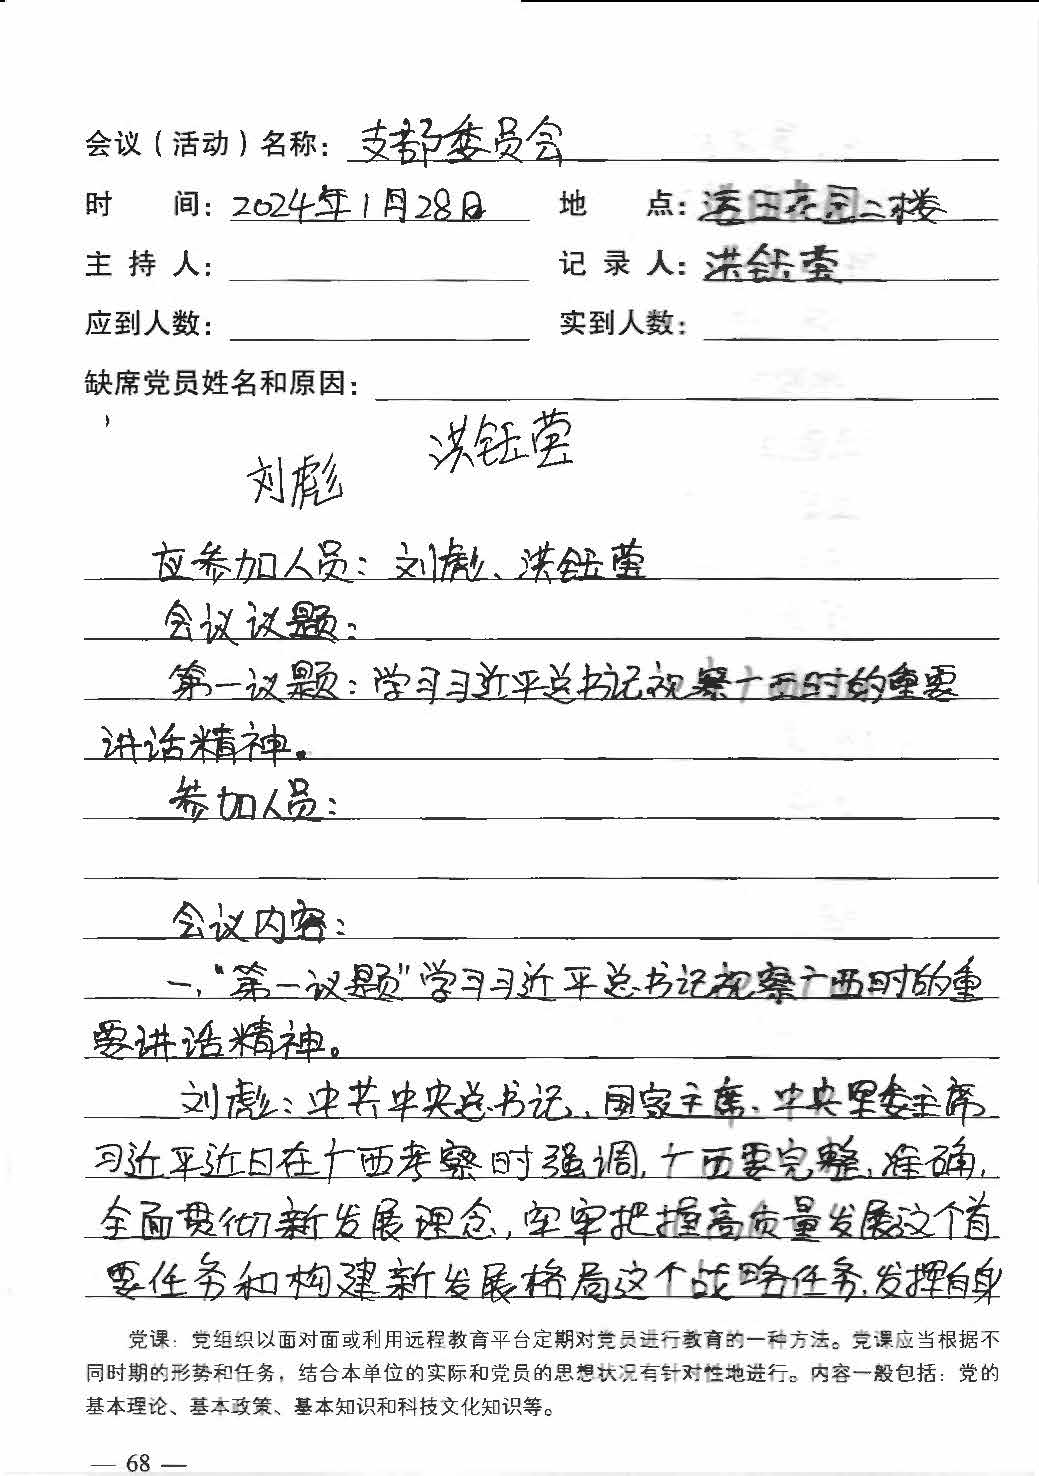 会议（活动）名称：支部委员会
时 间：2024年1月28日 地 点：莲田花园二楼
主 持 人： 记 录 人：洪钰莹
应到人数： 实到人数：
缺席党员姓名和原因：
洪钰莹
刘彪
应参加人员：刘彪、洪钰莹
会议议题：
第一议题：学习习近平总书记视察广西时的重要
讲话精神。
参加人员：
会议内容：
一、“第一议题”学习习近平总书记视察广西时的重
要讲话精神。
刘彪：中共中央总书记、国家主席、中央军委主席
习近平近日在广西考察时强调，广西要完整、准确、
全面贯彻新发展理念，牢牢把握高质量发展这个首
要任务和构建新发展格局这个战略任务，发挥自身
党课：党组织以面对面或利用远程教育平台定期对党员进行教育的一种方法。党课应当根据不
同时期的形势和任务，结合本单位的实际和党员的思想状况有针对性地进行。内容一般包括：党的
基本理论、基本政策、基本知识和科技文化知识等。
— 68 —